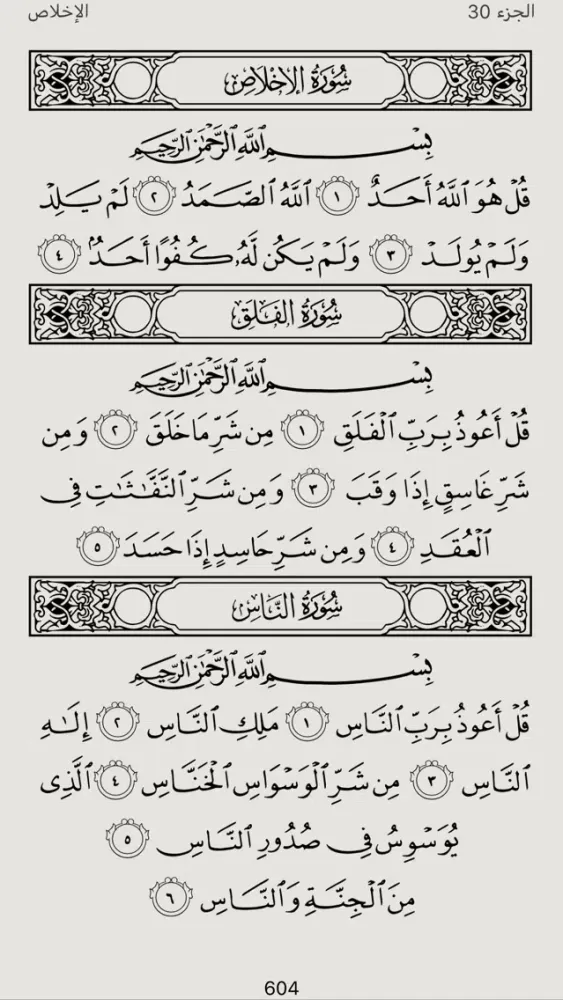 الجزء 30
الإخلاص
سُورَةُ الإِخْلَاصِ
بِسْمِ ٱللَّهِ ٱلرَّحْمَٰنِ ٱلرَّحِيمِ
قُلْ هُوَ ٱللَّهُ أَحَدٌ ١ ٱللَّهُ ٱلصَّمَدُ ٢ لَمْ يَلِدْ
وَلَمْ يُولَدْ ٣ وَلَمْ يَكُن لَّهُۥ كُفُوًا أَحَدٌۢ ٤
سُورَةُ الفَلَقِ
بِسْمِ ٱللَّهِ ٱلرَّحْمَٰنِ ٱلرَّحِيمِ
قُلْ أَعُوذُ بِرَبِّ ٱلْفَلَقِ ١ مِن شَرِّ مَا خَلَقَ ٢ وَمِن
شَرِّ غَاسِقٍ إِذَا وَقَبَ ٣ وَمِن شَرِّ ٱلنَّفَّٰثَٰتِ فِى
ٱلْعُقَدِ ٤ وَمِن شَرِّ حَاسِدٍ إِذَا حَسَدَ ٥
سُورَةُ النَّاسِ
بِسْمِ ٱللَّهِ ٱلرَّحْمَٰنِ ٱلرَّحِيمِ
قُلْ أَعُوذُ بِرَبِّ ٱلنَّاسِ ١ مَلِكِ ٱلنَّاسِ ٢ إِلَٰهِ
ٱلنَّاسِ ٣ مِن شَرِّ ٱلْوَسْوَاسِ ٱلْخَنَّاسِ ٤ ٱلَّذِى
يُوَسْوِسُ فِى صُدُورِ ٱلنَّاسِ ٥
مِنَ ٱلْجِنَّةِ وَٱلنَّاسِ ٦
604